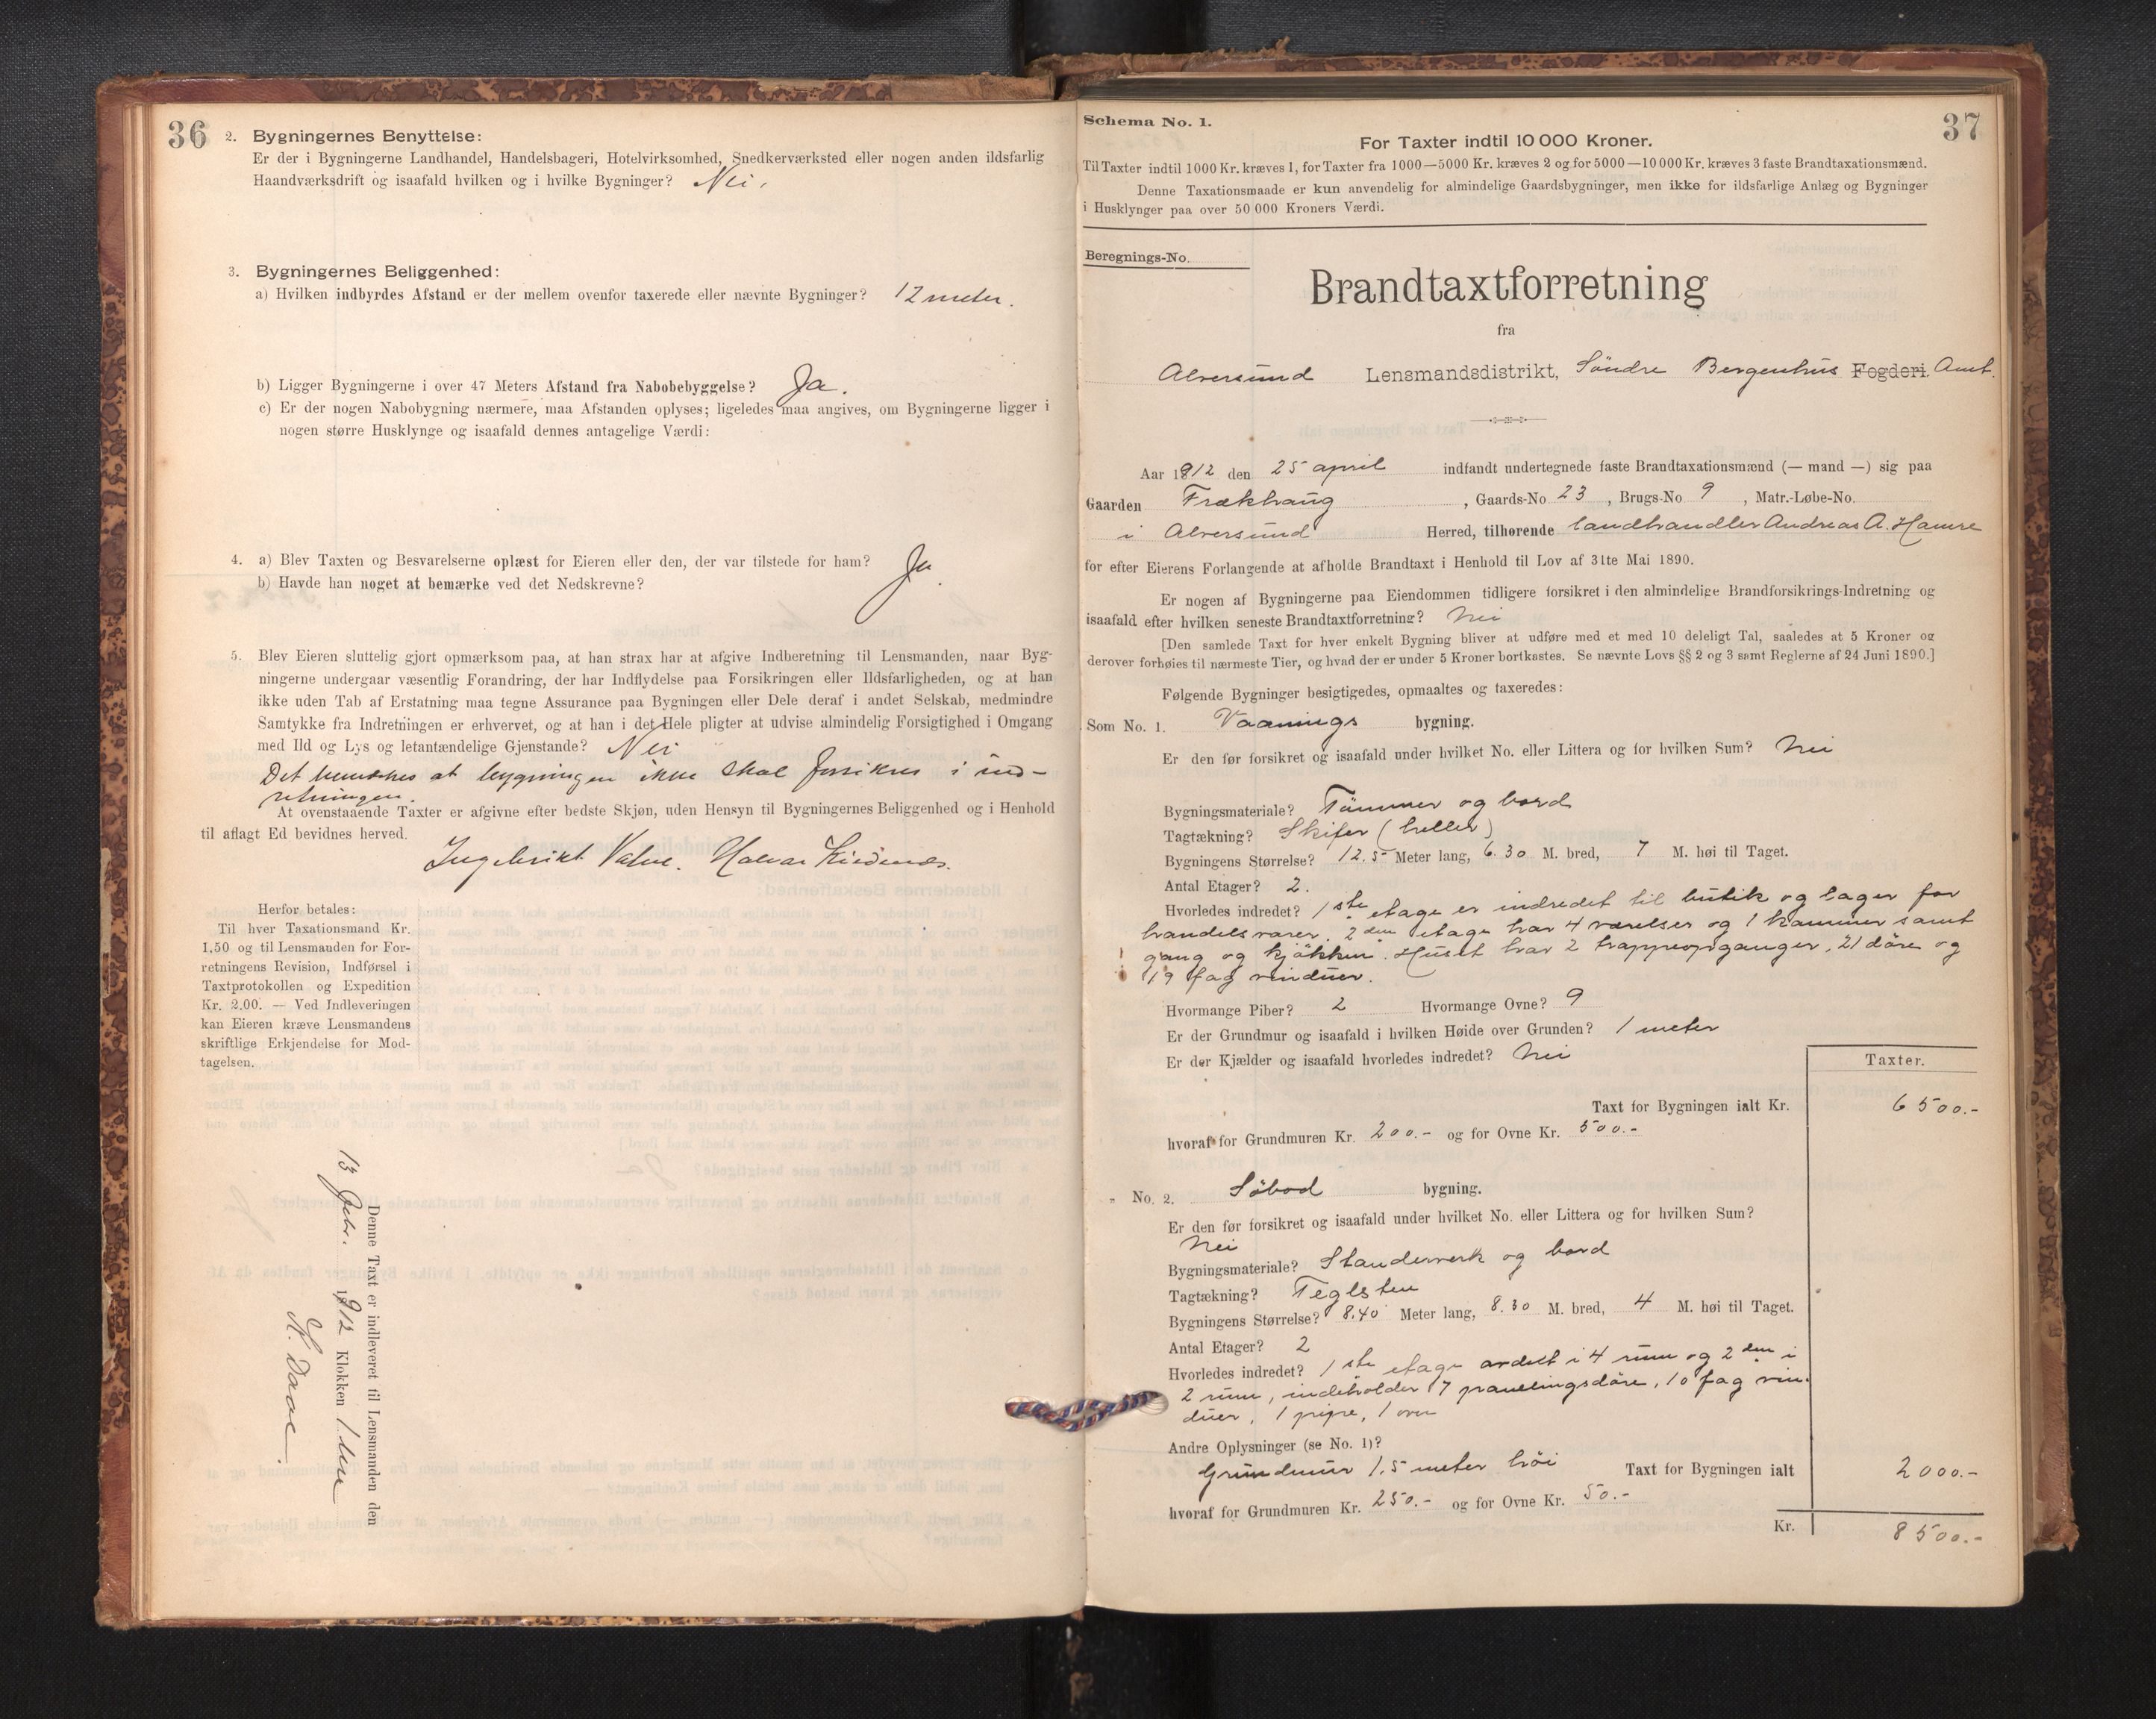 36
2. Bygningernes Benyttelse:
Er der i Bygningerne Landhandel, Handelsbageri, Hotelvirksomhed, Snedkerværksted eller nogen anden ildsfarlig
Haandværksdrift og isaafald hvilken og i hvilke Bygninger? Nei.
3. Bygningernes Beliggenhed:
a) Hvilken indbyrdes Afstand er der mellem ovenfor taxerede eller nævnte Bygninger? 12 meter.
b) Ligger Bygningerne i over 47 Meters Afstand fra Nabobebyggelse? Ja.
c) Er der nogen Nabobygning nærmere, maa Afstanden oplyses; ligeledes maa angives, om Bygningerne ligger i
nogen større Husklynge og isaafald dennes antagelige Værdi:
4. a) Blev Taxten og Besvarelserne oplæst for Eieren eller den, der var tilstede for ham? Ja
b) Havde han noget at bemærke ved det Nedskrevne? Ja.
5. Blev Eieren sluttelig gjort opmærksom paa, at han strax har at afgive Indberetning til Lensmanden, naar Byg-
ningerne undergaar væsentlig Forandring, der har Indflydelse paa Forsikringen eller Ildsfarligheden, og at han
ikke uden Tab af Erstatning maa tegne Assurance paa Bygningen eller Dele deraf i andet Selskab, medmindre
Samtykke fra Indretningen er erhvervet, og at han i det Hele pligter at udvise almindelig Forsigtighed i Omgang
med Ild og Lys og letantændelige Gjenstande? Nei
Det bemærkes at bygningen ikke skal forsikres i ind-
retningen.
At ovenstaaende Taxter er afgivne efter bedste Skjøn, uden Hensyn til Bygningernes Beliggenhed og i Henhold
til aflagt Ed bevidnes herved.
Ingebrikt Halvar
Herfor betales:
Til hver Taxationsmand Kr.
1,50 og til Lensmanden for For-
retningens Revision, Indførsel i
Taxtprotokollen og Expedition
Kr. 2.00. — Ved Indleveringen
kan Eieren kræve Lensmandens
skriftlige Erkjendelse for Mod-
tagelsen.
Denne Taxt er indleveret til Lensmanden den
13 Febr. 1912 Klokken 1
K. Daae.
37
Schema No. 1.
For Taxter indtil 10 000 Kroner.
Til Taxter indtil 1000 Kr. kræves 1, for Taxter fra 1000—5000 Kr. kræves 2 og for 5000—10 000 Kr. kræves 3 faste Brandtaxationsmænd.
Denne Taxationsmaade er kun anvendelig for almindelige Gaardsbygninger, men ikke for ildsfarlige Anlæg og Bygninger
i Husklynger paa over 50 000 Kroners Værdi.
Beregnings-No.
Brandtaxtforretning
fra
Alversund Lensmandsdistrikt, Söndre Bergenhus Fogderi Amt.
Aar 1912 den 25 april indfandt undertegnede faste Brandtaxationsmænd (— mand —) sig paa
Gaarden Frækhaug, Gaards-No 23, Brugs-No 9, Matr.-Løbe-No.
i Alversund Herred, tilhørende landhandler Andreas A. Hamre
for efter Eierens Forlangende at afholde Brandtaxt i Henhold til Lov af 31te Mai 1890.
Er nogen af Bygningerne paa Eiendommen tidligere forsikret i den almindelige Brandforsikrings-Indretning og
isaafald efter hvilken seneste Brandtaxtforretning? Nei
[Den samlede Taxt for hver enkelt Bygning bliver at udføre med et med 10 deleligt Tal, saaledes at 5 Kroner og
derover forhøies til nærmeste Tier, og hvad der er under 5 Kroner bortkastes. Se nævnte Lovs §§ 2 og 3 samt Reglerne af 24 Juni 1890.]
Følgende Bygninger besigtigedes, opmaaltes og taxeredes:
Som No. 1. Vaanings bygning.
Er den før forsikret og isaafald under hvilket No. eller Littera og for hvilken Sum? Nei
Bygningsmateriale? Tömmer og bord
Tagtækning? Skifer (heller)
Bygningens Størrelse? 12.5 Meter lang, 6.30 M. bred, 7 M. høi til Taget.
Antal Etager? 2.
Hvorledes indredet? 1ste etage er indredet til butik og lager for
handelsvarer. 2den etage har 4 værelser og 1 kammer samt
gang og kjökken. Huset har 2 trappeopganger, 21 döre og
19 fag vinduer.
Hvormange Piber? 2 Hvormange Ovne? 9
Er der Grundmur og isaafald i hvilken Høide over Grunden? 1 meter
Er der Kjælder og isaafald hvorledes indredet? Nei
Taxter.
Taxt for Bygningen ialt Kr. 6500.-
hvoraf for Grundmuren Kr. 200.- og for Ovne Kr. 500.-
" No. 2. Söbod bygning.
Er den før forsikret og isaafald under hvilket No. eller Littera og for hvilken Sum?
Nei
Bygningsmateriale? Standerverk og bord
Tagtækning? Teglsten
Bygningens Størrelse? 8.40 Meter lang, 8.30 M. bred, 4 M. høi til Taget.
Antal Etager? 2
Hvorledes indredet? 1ste etage avdelt i 4 rum og 2den i
2 rum, indeholder 17 panelingsdöre, 10 fag vin-
duer, 1 pipe, 1 ovn
Andre Oplysninger (se No. 1)?
Grundmur 1.5 meter höi Taxt for Bygningen ialt 2000.-
hvoraf for Grundmuren Kr. 250.- og for Ovne Kr. 50.-
Kr. 8500.-